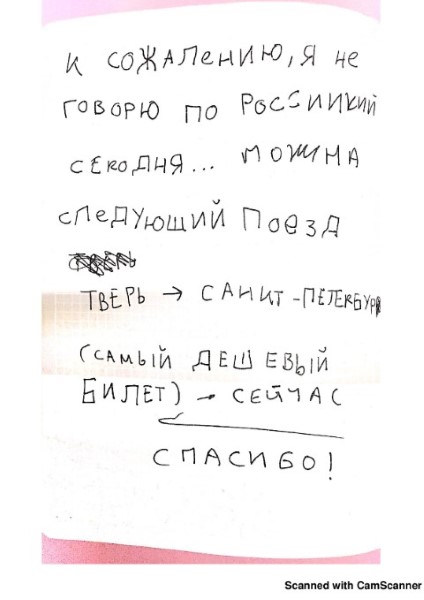 К СОЖАЛЕНИЮ, Я НЕ
ГОВОРЮ ПО РОССИИКИЙ
СЕКОДНЯ... МОЖНА
СЛЕДУЮЩИЙ ПОЕЗД
ТВЕРЬ → САНКТ-ПЕТЕРБУРГ
(САМЫЙ ДЕШЕВЫЙ
БИЛЕТ) → СЕЙЧАС
СПАСИБО!
Scanned with CamScanner